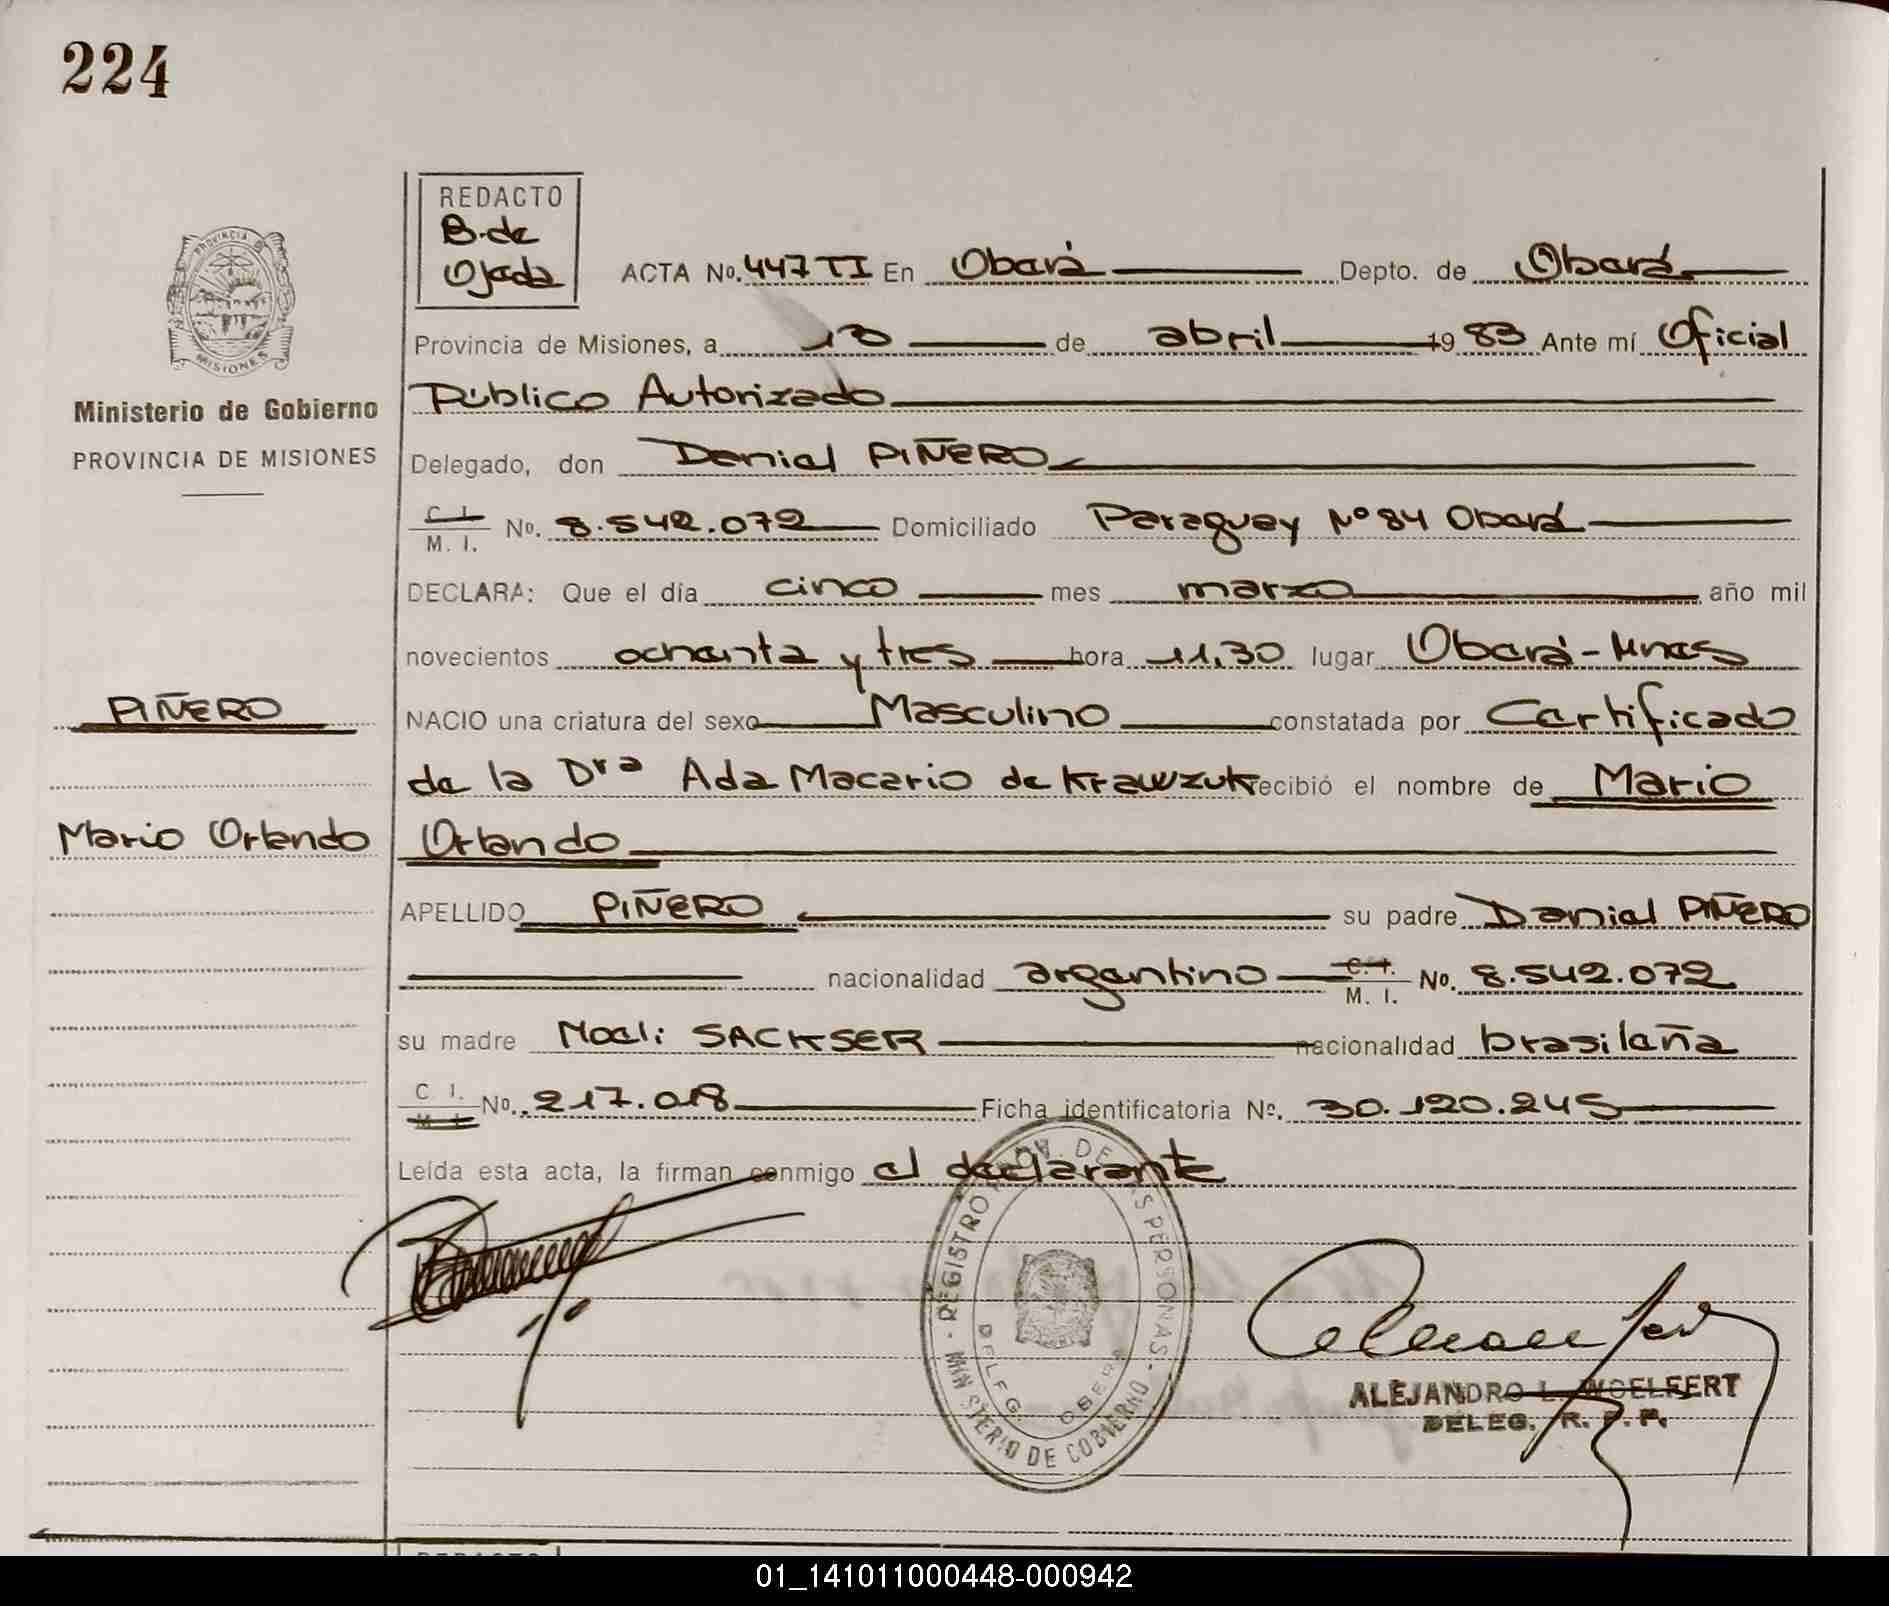 224
REDACTO
B. de
Ojeda
ACTA No. 447 TI En Oberá Depto. de Oberá
Provincia de Misiones, a 13 de abril 1983 Ante mí Oficial
Ministerio de Gobierno
PROVINCIA DE MISIONES
Público Autorizado
Delegado, don Daniel PIÑERO
C. I.
M. I. No. 8.542.072 Domiciliado Paraguay Nº 84 Oberá
DECLARA: Que el día cinco mes marzo año mil
novecientos ochenta y tres hora 11,30 lugar Oberá - Mnes
PIÑERO
NACIO una criatura del sexo Masculino constatada por Certificado
de la Dra Ada Macerio de Krawzuk recibió el nombre de Mario
Mario Orlando
Orlando
APELLIDO PIÑERO su padre Daniel PIÑERO
nacionalidad argentino C. I.
M. I. No. 8.542.072
su madre Noeli SACKSER nacionalidad brasileña
C I.
M I. No. 217.018 Ficha identificatoria No. 30.120.245
Leída esta acta, la firman conmigo el declarante
REGISTRO DE LAS PERSONAS - MINISTERIO DE GOBIERNO
DELEG. OBERA
ALEJANDRO L. WOELFERT
DELEG. R. P. P.
REDACTO
01_141011000448-000942